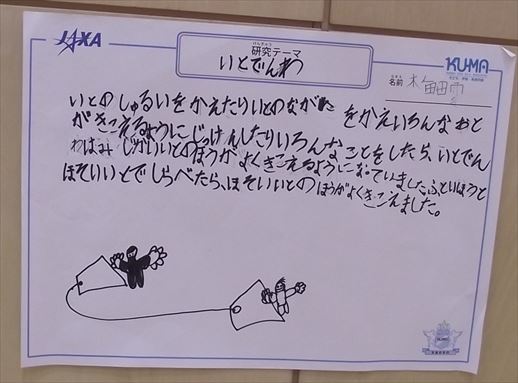 JAXA
けんきゅう
研究テーマ
いとでんわ
KUMA
なまえ
名前
いとのしゅるいをかえたりいとのながさをかえいろんなおと
がきこえるようにじっけんしたりいろんなことをしたら、いとでん
わはみじかいいとのほうがよくきこえるようになっていました。ふといほうと
ほそいいとでしらべたら、ほそいいとのほうがよくきこえました。